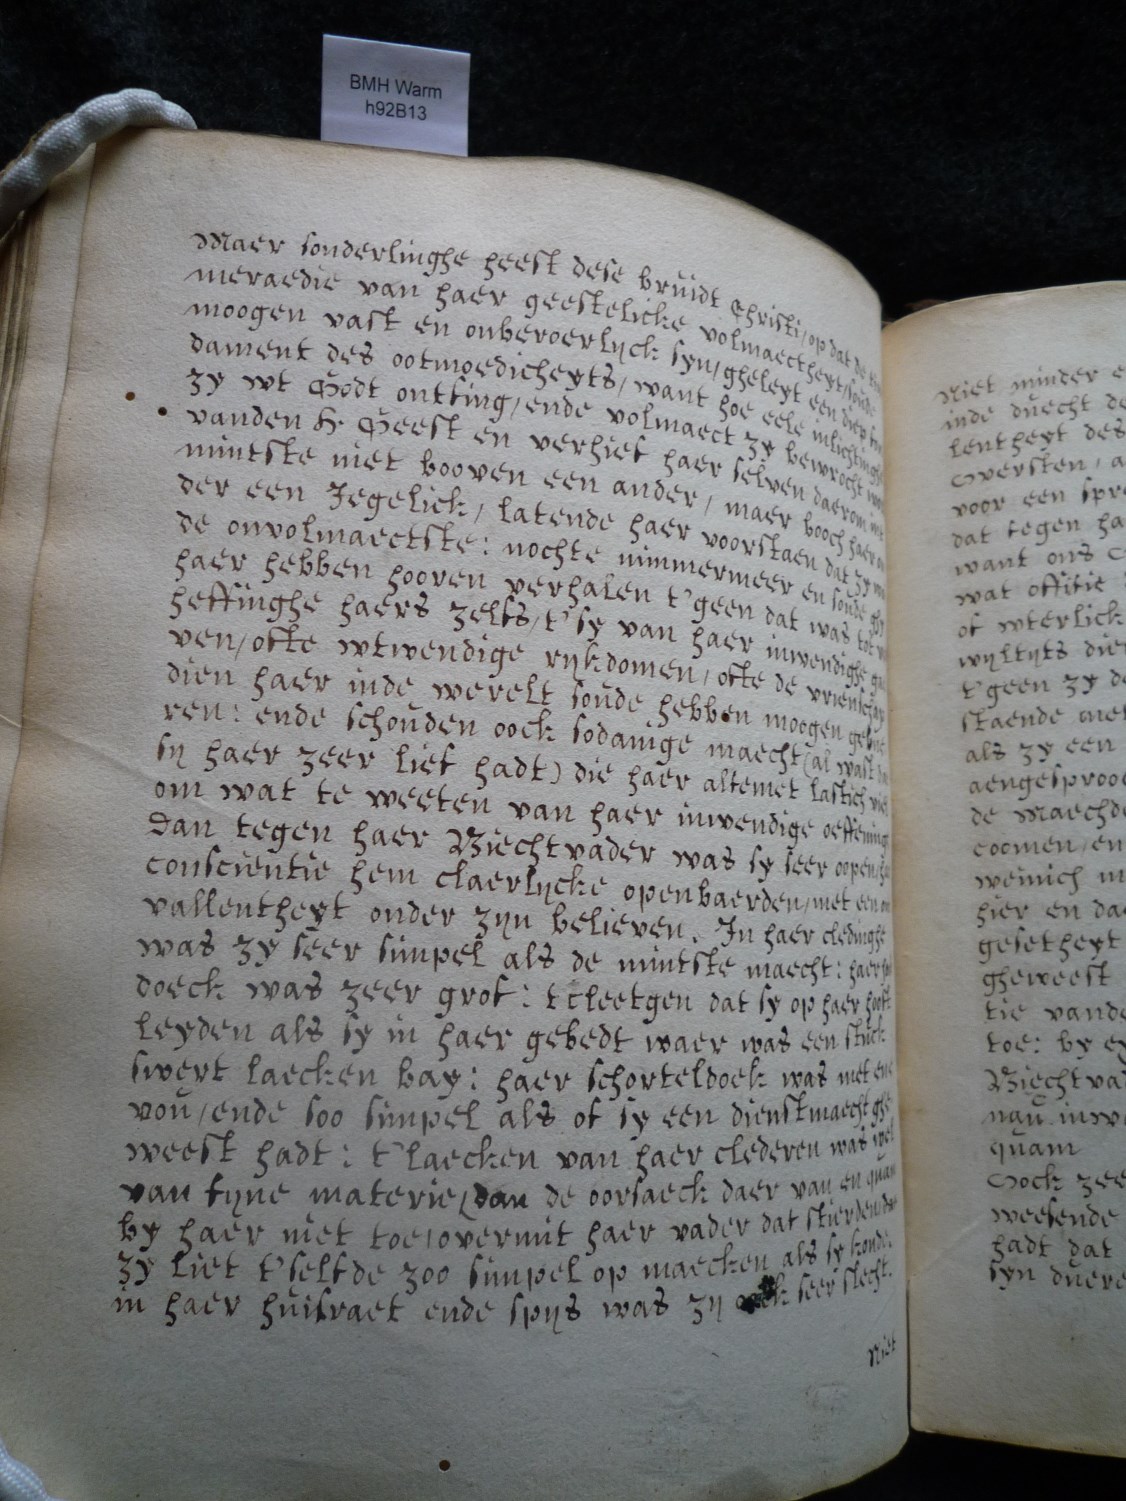 BMH Warm
h92B13
Maer sonderlinghe heeft dese bruidt Christi, op dat de
meraedie van haer geestelicke volmaectheyt, soude
moogen vast en onberoerlijck syn, gheleyt een diep
dament des ootmoedicheyts, want hoe eele inlichtinghe
zy wt Godt ontfing, ende volmaect zy bewrocht
vanden H. Geest en verhief haer selven daerom
mintste niet booven een ander, maer booch haer
der een Jegelick, latende haer voorstaen dat zy
de onvolmaectste: nochte nimmermeer en soude
haer hebben hooren verhalen t'geen dat was tot
heffinghe haers zelfs, t'sy van haer inwendighe
ven, ofte wtwendige rijkdomen, ofte de vrienschap
dien haer inde werelt soude hebben moogen
ren: ende schouden oock sodanige maecht (al wast
sij haer zeer lief hadt) die haer altemet lastich
om wat te weeten van haer inwendige oeffeninge
dan tegen haer Biechtvader was sy seer oopen,
conscientie hem claerlijcke openbaerden, met een
vallentheyt onder zijn believen. In haer cledinghe
was zy seer simpel als de mintste maecht: haer
doeck was zeer grof: t cleetgen dat sy op haer hooft
leyden als sy in haer gebedt waer was een stuck
swert laecken bay: haer schorteldoek was met
vou, ende soo simpel als of sy een dienstmaecht ghe
weest hadt: t'laecken van haer clederen was wel
van fijne materie, dan de oorsaeck daer van en quam
by haer niet toe, overmit haer vader dat stierden,
zy liet t'selfde zoo simpel op maecken als sy konde.
in haer huisraet ende spijs was zij oock seer slecht.
Niet
Niet minder
inde duecht
lentheyt des
Oversten,
voor een
dat tegen
want ons
wat offitie
of wterlick
wijltijts
t'geen zy
staende met
als zy een
aengesproo
de Maechde
coomen, en
weinich
hier en
gesetheyt
gheweest
tie vande
toe: by
Biechtva
quam
Oock zee
weesende
hadt dat
syn